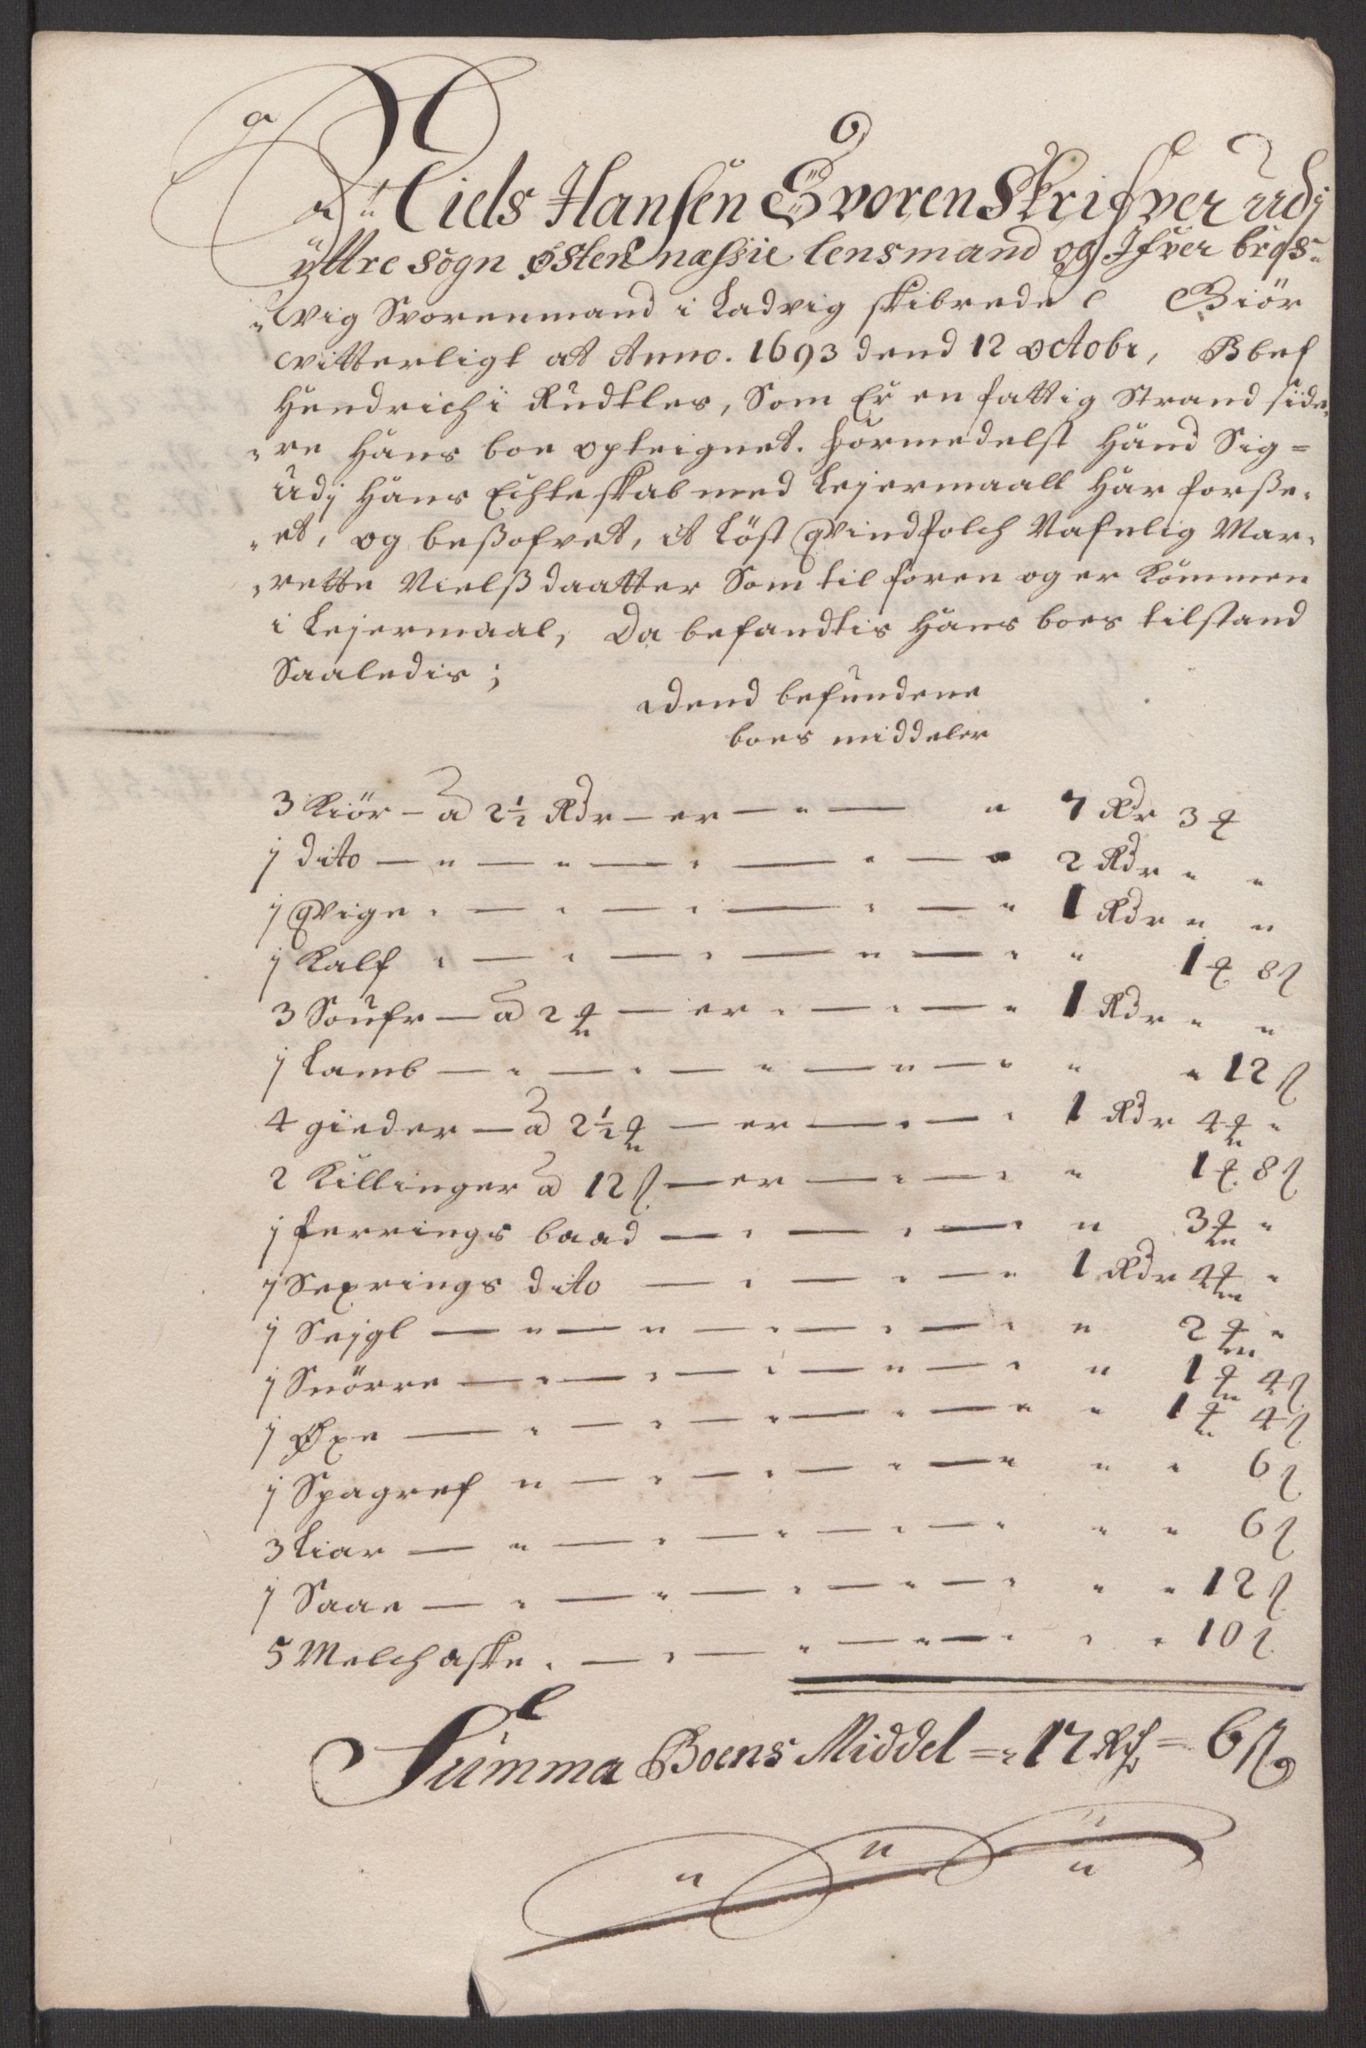 Niels Hansen Svoren Skrifver udj
yttre sogn østen næssie lensmand og Ifver brės-
vig Svorenmand i Ladvig skibrede Giör
vitterligt at Anno. 1693 dend 12 octobr, Blef
Hendrich i Rudtles, Som Er en fattig Strand side-
re hans boe opteignet. formedelst hand Sig=
udj hans Echteskab med Lejermaall har forsze-
et, og beszofvet, it Löst qvindfolch Nafnlig Mar-
rette Nielsz daatter Som til foren og er kommen
i Lejermaal, Da befandtis hans boes tilstand
Saaledis;
Dend befundene
boes middeler
3 Kiör - a 2½ Rdr - er 7 Rdr 3 ₰
j dito 2 Rdr
j qvige 1 Rdr
j Kalf 1 ₰ 8 ß
3 Soufr - a 2 ₰ - er 1 Rdr
j Lamb 12 ß
4 gieder - a 2½ ₰ - er 1 Rdr 4 ₰
2 Killinger a 12 ß - er 1 ₰ 8 ß
j ferrings baad 3 ₰
j Sexrings dito 1 Rdr 4 ₰
j Sejgl 2 ₰
j Snörre 1 ₰ 4 ß
j Øxe 1 ₰ 4 ß
j Spagref 6 ß
3 Liar 6 ß
j Saae 12 ß
5 Melch aske 10 ß
Summa Boens Middel = 17 Rd = 6 ß